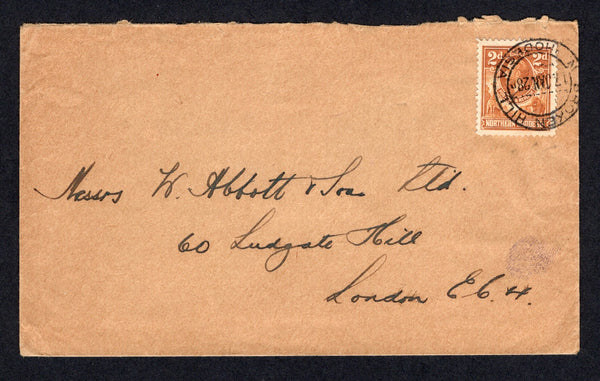 2d 2d
NORTHERN
BROKEN HILL
17 JAN 28
Messrs W. Abbott & Son Ltd.
60 Ludgate Hill
London E.C.4.